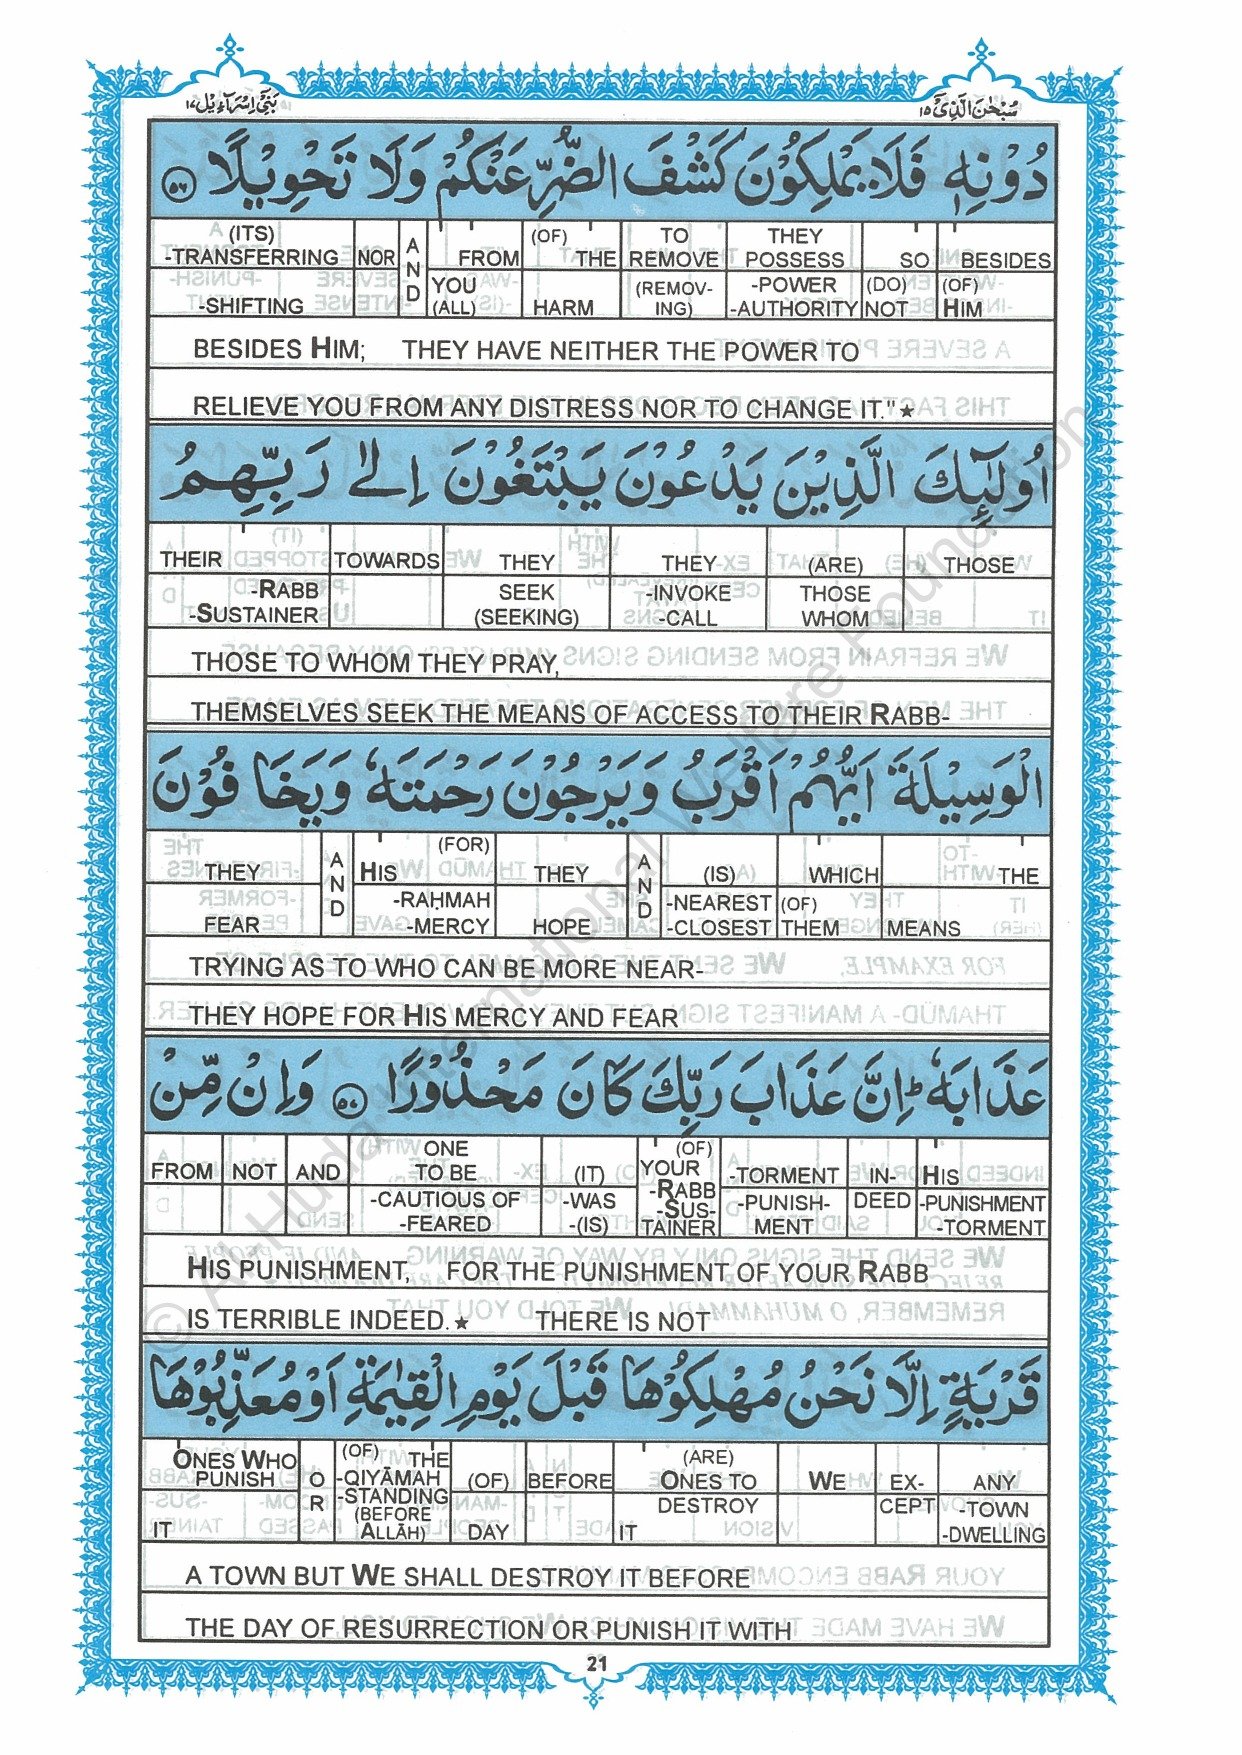 سُبْحٰنَ الَّذِیْۤ ١٥
بَنِیْۤ اِسْرَآءِیْل ١٧
دُوْنِهٖ فَلَا یَمْلِكُوْنَ كَشْفَ الضُّرِّ عَنْكُمْ وَلَا تَحْوِیْلًا ﴿٥٦﴾
(ITS) -TRANSFERRING NOR AND FROM (OF) THE TO REMOVE THEY POSSESS SO BESIDES
-SHIFTING YOU (ALL) HARM (REMOVING) -POWER -AUTHORITY (DO) NOT (OF) HIM
BESIDES HIM; THEY HAVE NEITHER THE POWER TO
RELIEVE YOU FROM ANY DISTRESS NOR TO CHANGE IT."★
اُولٰٓئِكَ الَّذِیْنَ یَدْعُوْنَ یَبْتَغُوْنَ اِلٰی رَبِّهِمُ
THEIR TOWARDS THEY THEY (ARE) THOSE
-RABB -SUSTAINER SEEK (SEEKING) -INVOKE -CALL THOSE WHOM
THOSE TO WHOM THEY PRAY,
THEMSELVES SEEK THE MEANS OF ACCESS TO THEIR RABB-
الْوَسِیْلَةَ اَیُّهُمْ اَقْرَبُ وَیَرْجُوْنَ رَحْمَتَهٗ وَیَخَافُوْنَ
THEY AND HIS (FOR) THEY AND (IS) WHICH THE
FEAR -RAḤMAH -MERCY HOPE -NEAREST -CLOSEST (OF) THEM MEANS
TRYING AS TO WHO CAN BE MORE NEAR-
THEY HOPE FOR HIS MERCY AND FEAR
عَذَابَهٗ ؕ اِنَّ عَذَابَ رَبِّكَ كَانَ مَحْذُوْرًا ﴿٥٧﴾ وَاِنْ مِّنْ
FROM NOT AND ONE TO BE (IT) (OF) YOUR -TORMENT IN- HIS
-CAUTIOUS OF -FEARED -WAS -(IS) -RABB -SUSTAINER -PUNISHMENT DEED -PUNISHMENT -TORMENT
HIS PUNISHMENT, FOR THE PUNISHMENT OF YOUR RABB
IS TERRIBLE INDEED.★ THERE IS NOT
قَرْیَةٍ اِلَّا نَحْنُ مُهْلِكُوْهَا قَبْلَ یَوْمِ الْقِیٰمَةِ اَوْ مُعَذِّبُوْهَا
ONES WHO PUNISH OR (OF) THE -QIYĀMAH -STANDING (BEFORE ALLĀH) (OF) BEFORE (ARE) ONES TO WE EX- ANY
IT DAY DESTROY IT CEPT -TOWN -DWELLING
A TOWN BUT WE SHALL DESTROY IT BEFORE
THE DAY OF RESURRECTION OR PUNISH IT WITH
21
© Al-Huda International Welfare Foundation